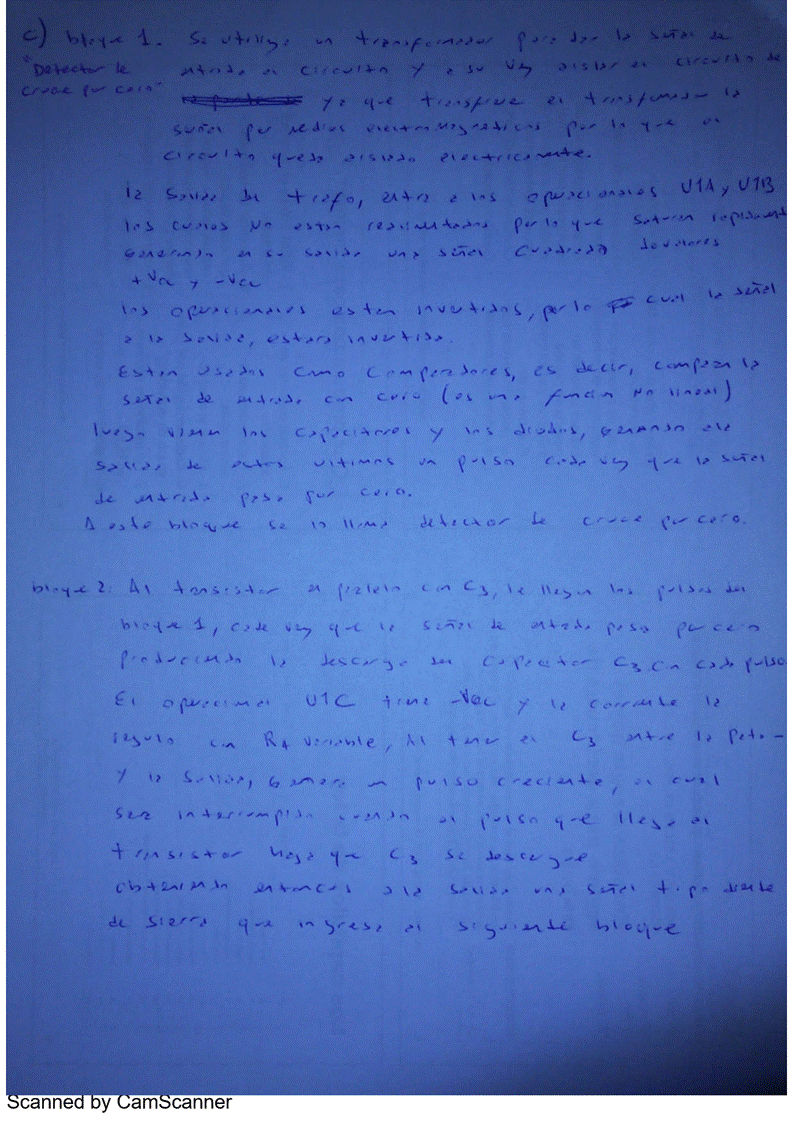 c) bloque 1. Se utiliza un transformador para dar la señal de
"Detector de entrada al circuito y a su vez aislar el circuito de
cruce por cero" ya que transfiere el transformador la
señal por medios electromagneticos por lo que el
circuito queda aislado electricamente.
la salida del trafo, entra a los operacionales U1A y U1B
los cuales no estan realimentados por lo que saturan rapidamente
generando en su salida una señal cuadrada de valores
+Vcc y -Vcc
los operacionales estan invertidos, por lo cual la señal
a la salida, estara invertida.
Estan usados como comparadores, es decir, comparan la
señal de entrada con cero (es una funcion no lineal)
luego vienen los capacitores y los diodos, generando a la
salida de estos ultimos un pulso cada vez que la señal
de entrada pasa por cero.
A este bloque se lo llama detector de cruce por cero.
bloque 2: Al transistor en paralelo con C3, le llegan los pulsos del
bloque 1, cada vez que la señal de entrada pasa por cero
produciendo la descarga del capacitor C3 con cada pulso
El operacional U1C tiene -Vcc y la corriente la
regulo con R4 variable, Al tener el C3 entre la pata -
y la salida, genera un pulso creciente, el cual
sera interrumpido cuando el pulso que llega al
transistor haga que C3 se descargue
obteniendo entonces a la salida una señal tipo diente
de sierra que ingresa al siguiente bloque
Scanned by CamScanner